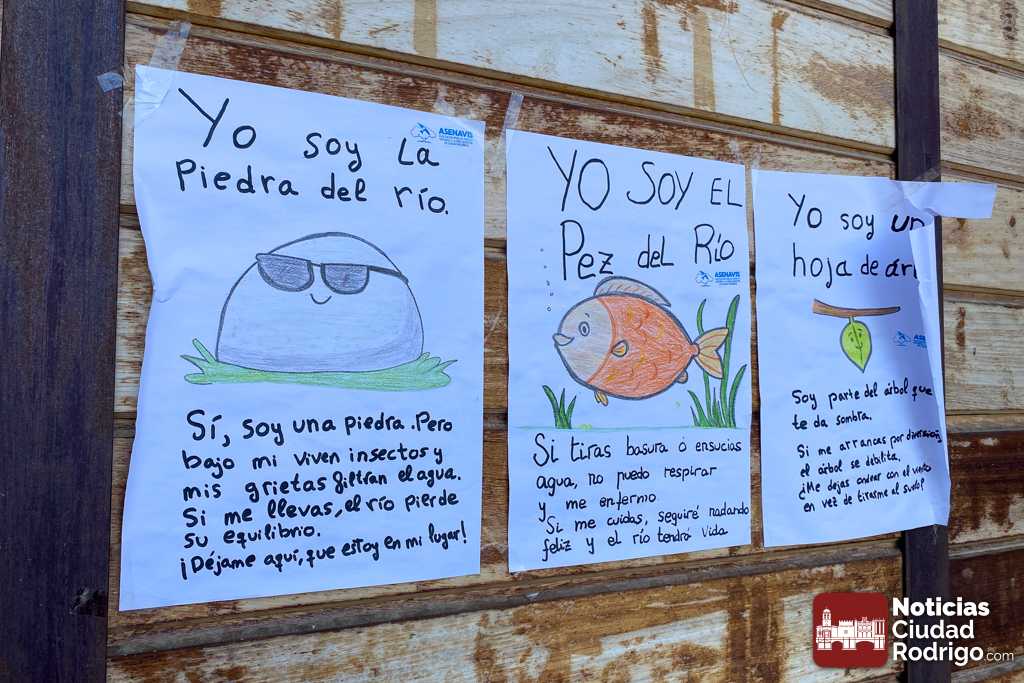 Yo soy La
Piedra del río.
ASENAVIS
Sí, soy una piedra. Pero
bajo mi viven insectos y
mis grietas filtran el agua.
Si me llevas, el río pierde
su equilibrio.
¡Déjame aquí, que estoy en mi lugar!
YO SOY EL
Pez del Río
ASENAVIS
Si tiras basura o ensucias
agua, no puedo respirar
y me enfermo.
Si me cuidas, seguiré nadando
feliz y el río tendrá vida
Yo soy un
hoja de ár
ASENAVIS
Soy parte del árbol que
te da sombra.
Si me arrancas por diversión,
el árbol se debilita.
¿Me dejas ondear con el viento
en vez de tirarme al suelo?
Noticias
Ciudad
Rodrigo.com